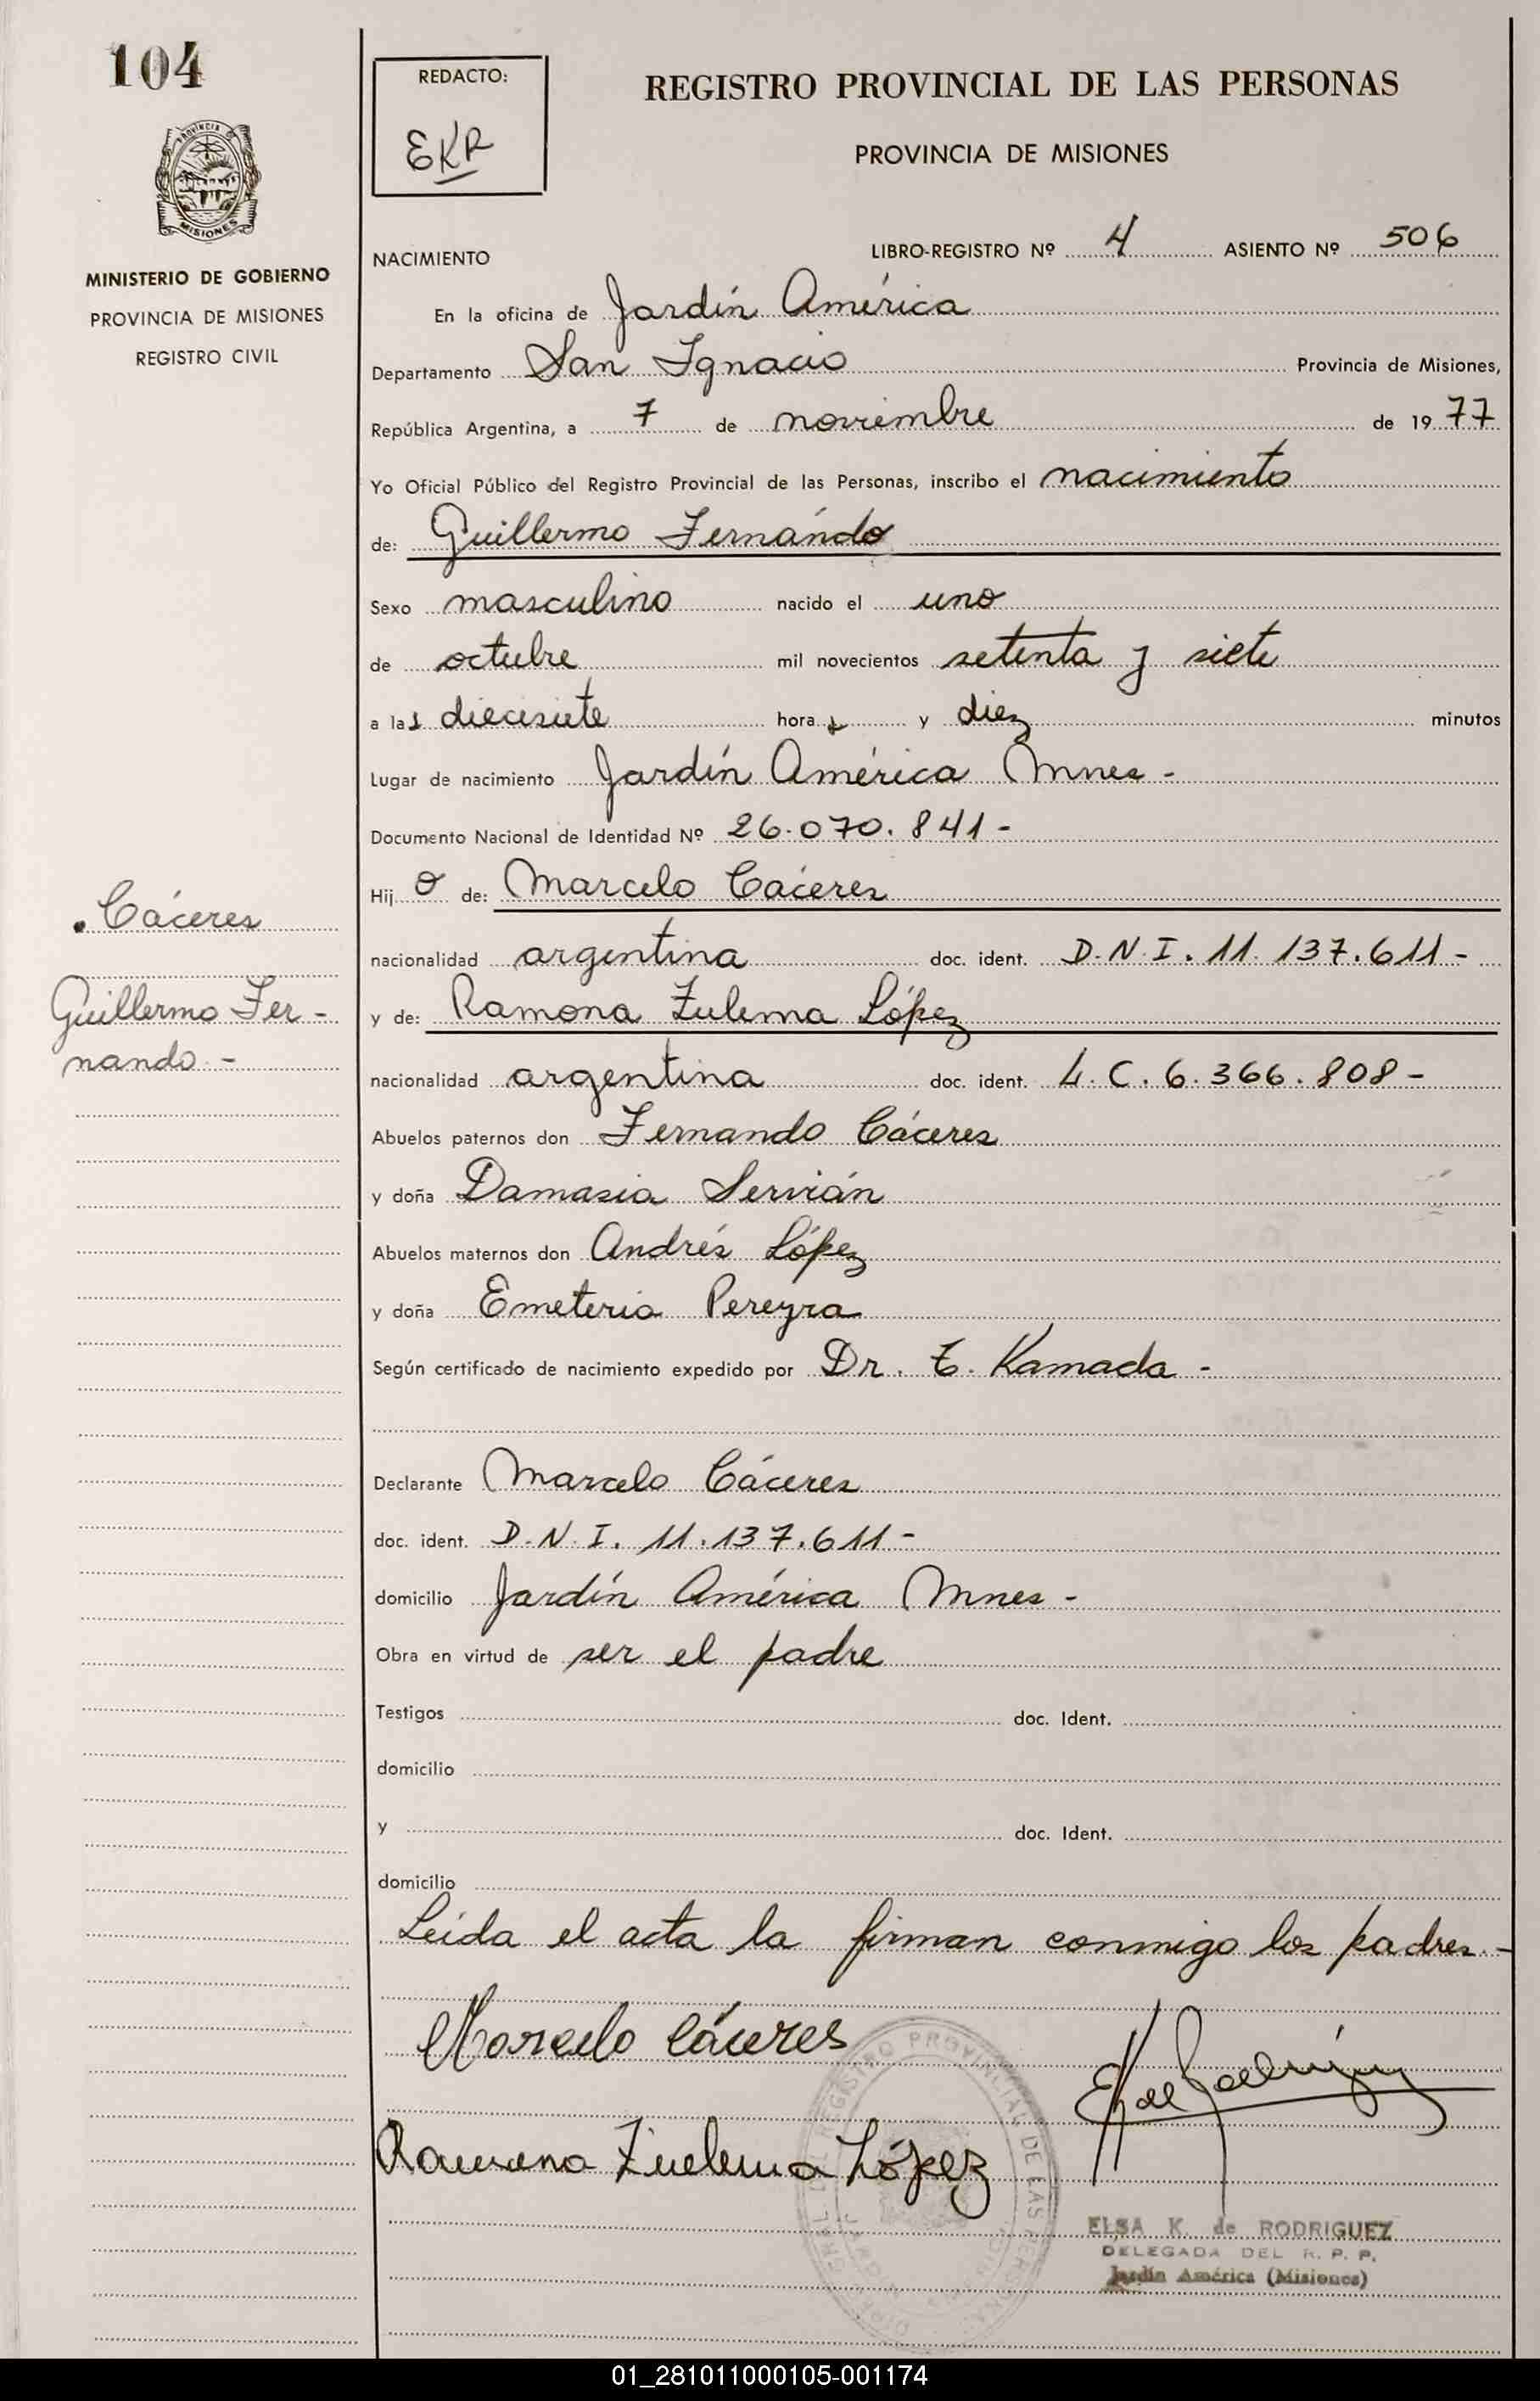 104
REDACTO:
EKR
REGISTRO PROVINCIAL DE LAS PERSONAS
PROVINCIA DE MISIONES
PROVINCIA DE
MISIONES
MINISTERIO DE GOBIERNO
PROVINCIA DE MISIONES
REGISTRO CIVIL
NACIMIENTO
LIBRO-REGISTRO Nº 4 ASIENTO Nº 506
En la oficina de Jardín América
Departamento San Ignacio Provincia de Misiones,
República Argentina, a 7 de noviembre de 1977
Yo Oficial Público del Registro Provincial de las Personas, inscribo el nacimiento
de: Guillermo Fernándo
Sexo masculino nacido el uno
de octubre mil novecientos setenta y siete
a las diecisiete horas y diez minutos
Lugar de nacimiento Jardín América Mnes -
Documento Nacional de Identidad Nº 26.070.841-
Hijo de: Marcelo Cáceres
nacionalidad argentina doc. ident. D.N.I. 11.137.611-
y de: Ramona Zulema López
nacionalidad argentina doc. ident. L.C. 6.366.808-
Abuelos paternos don Fernando Cáceres
y doña Damasia Servián
Abuelos maternos don Andrés López
y doña Emeteria Pereyra
Según certificado de nacimiento expedido por Dr. T. Kamada -
Declarante Marcelo Cáceres
doc. ident. D.N.I. 11.137.611-
domicilio Jardín América Mnes -
Obra en virtud de ser el padre
Testigos doc. Ident.
domicilio
y doc. Ident.
domicilio
Leída el acta la firman conmigo los padres.-
Cáceres
Guillermo Fer-
nando.-
Marcelo Cáceres
Ramona Zulema López
REGISTRO PROVINCIAL DE LAS PERSONAS
ELSA K. de RODRIGUEZ
DELEGADA DEL R. P. P.
Jardín América (Misiones)
01_281011000105-001174